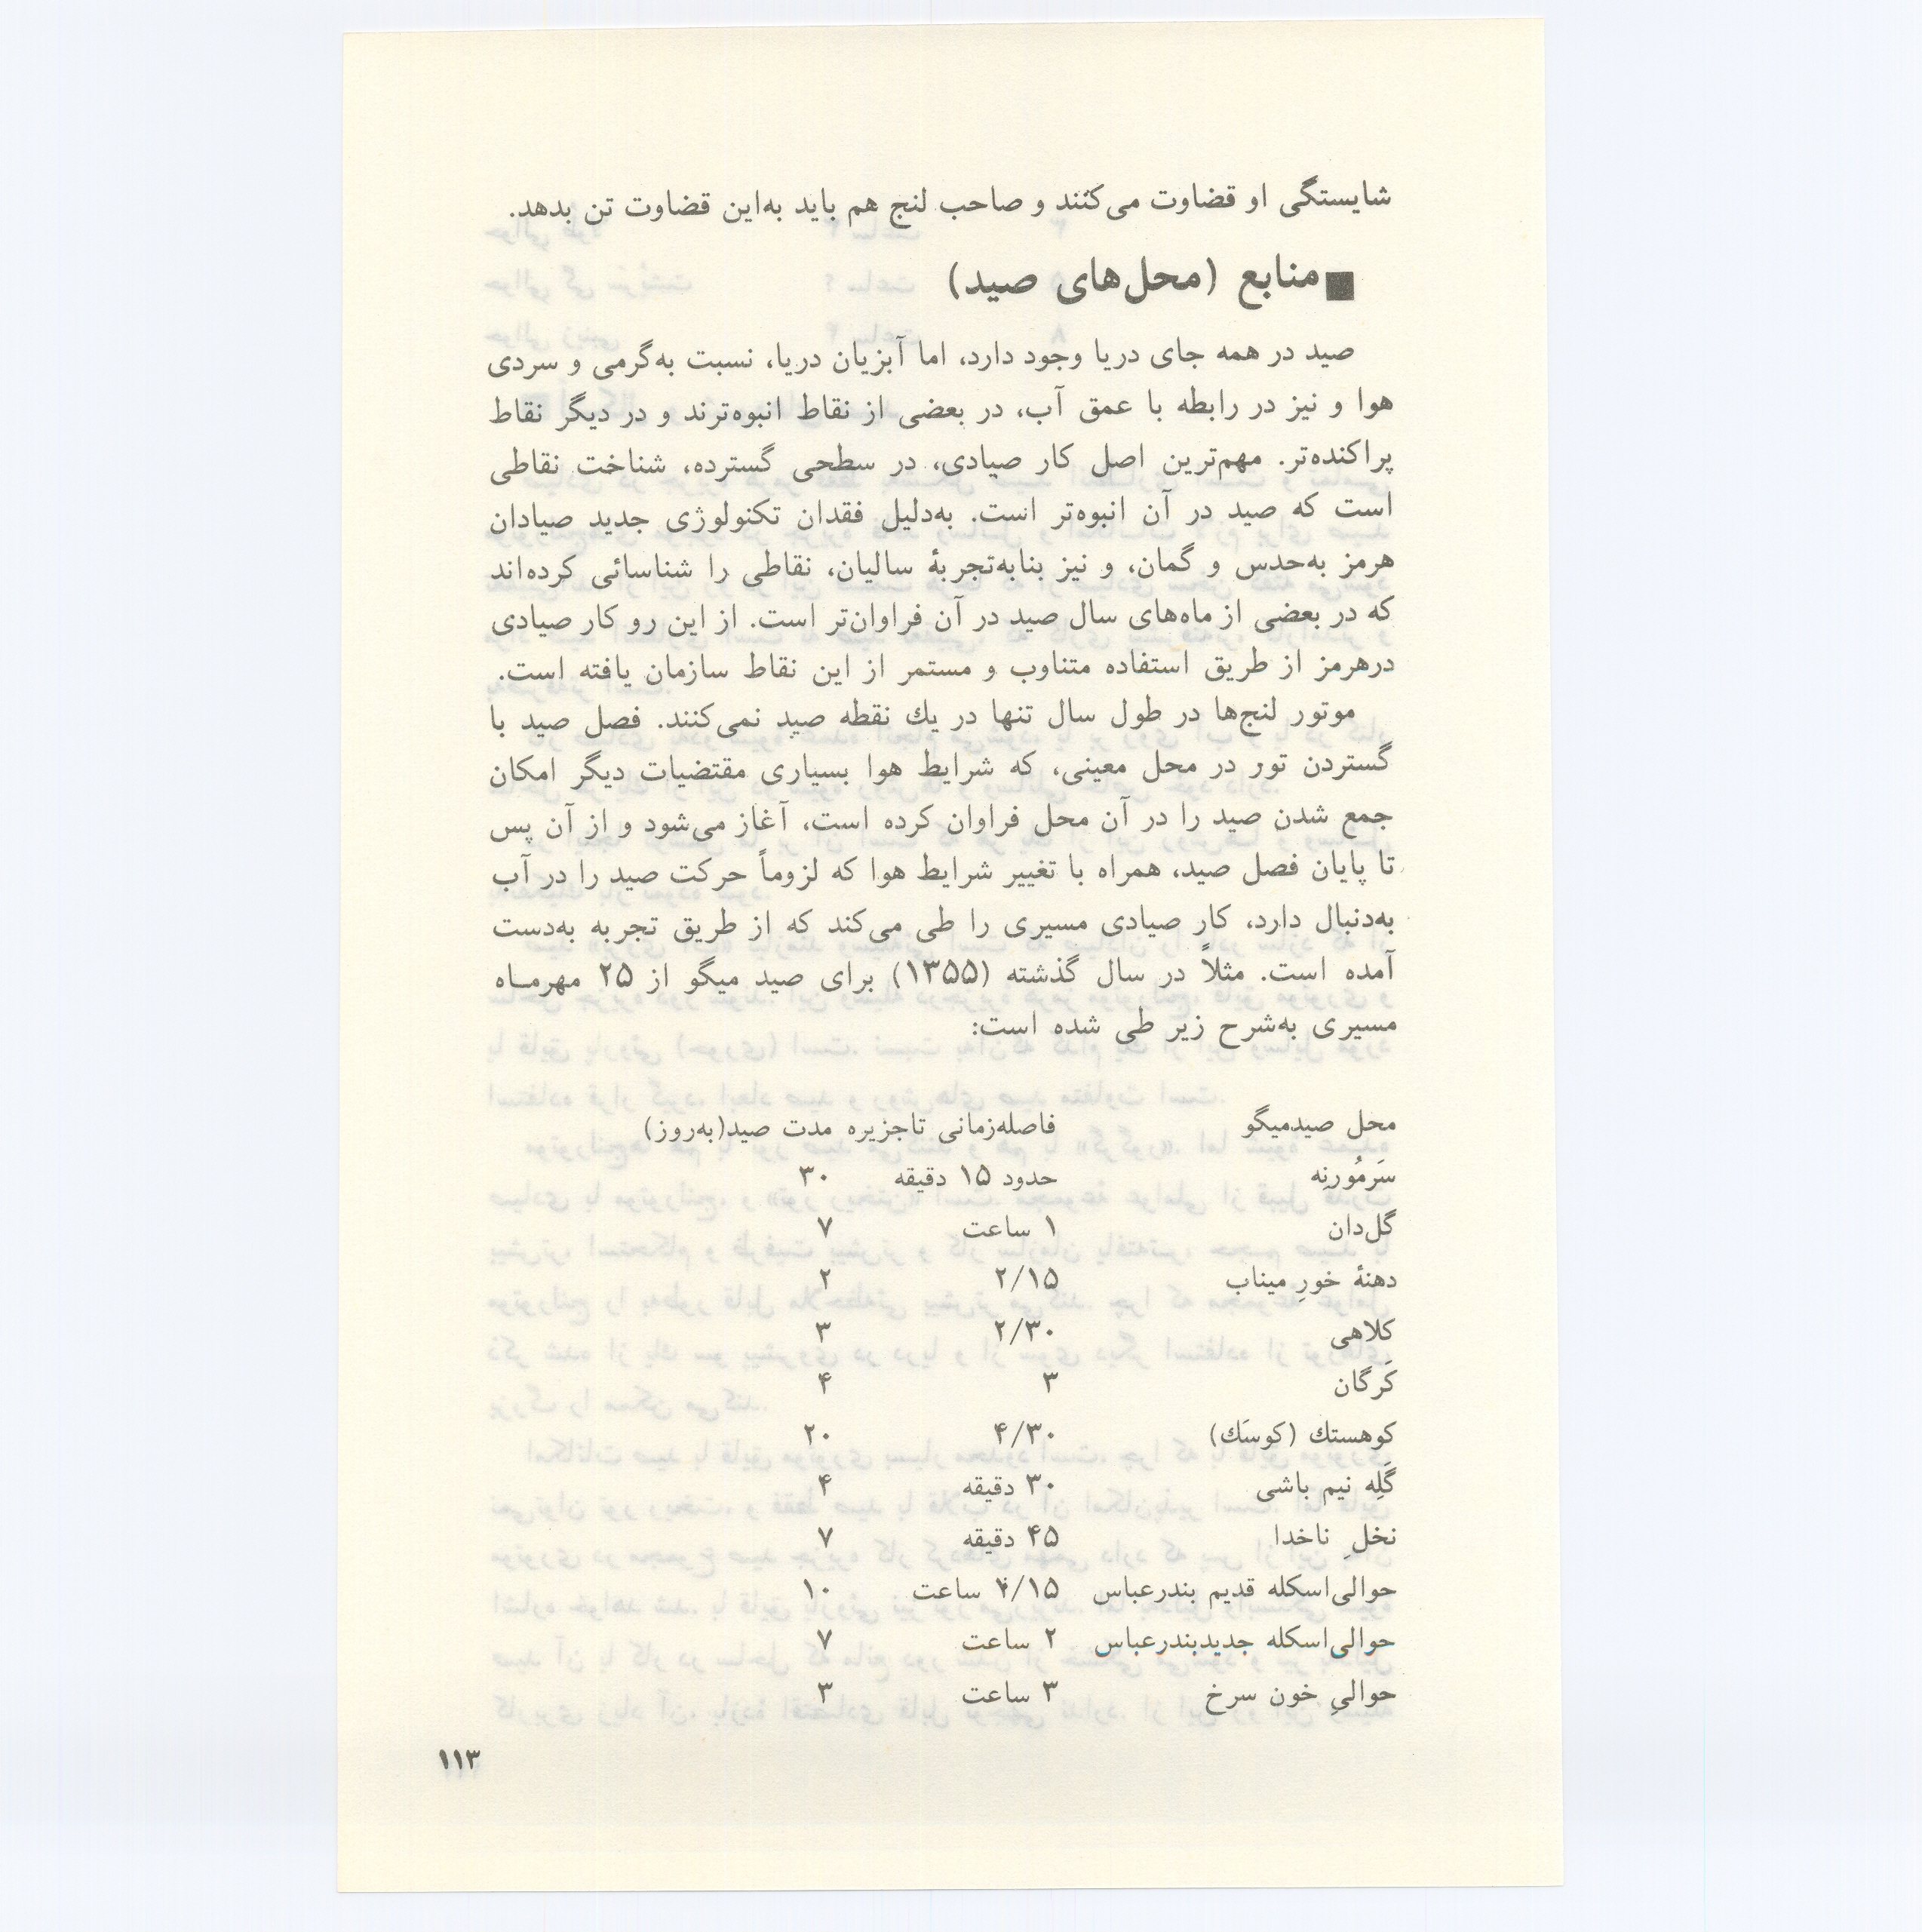 شایستگی او قضاوت می‌کنند و صاحب لنج هم باید به‌این قضاوت تن بدهد.
■منابع (محل‌های صید)
صید در همه جای دریا وجود دارد، اما آبزیان دریا، نسبت به‌گرمی و سردی
هوا و نیز در رابطه با عمق آب، در بعضی از نقاط انبوه‌ترند و در دیگر نقاط
پراکنده‌تر. مهم‌ترین اصل کار صیادی، در سطحی گسترده، شناخت نقاطی
است که صید در آن انبوه‌تر است. به‌دلیل فقدان تکنولوژی جدید صیادان
هرمز به‌حدس و گمان، و نیز بنابه‌تجربهٔ سالیان، نقاطی را شناسائی کرده‌اند
که در بعضی از ماه‌های سال صید در آن فراوان‌تر است. از این رو کار صیادی
درهرمز از طریق استفاده متناوب و مستمر از این نقاط سازمان یافته است.
موتور لنج‌ها در طول سال تنها در یك نقطه صید نمی‌کنند. فصل صید با
گستردن تور در محل معینی، که شرایط هوا بسیاری مقتضیات دیگر امکان
جمع شدن صید را در آن محل فراوان کرده است، آغاز می‌شود و از آن پس
تا پایان فصل صید، همراه با تغییر شرایط هوا که لزوماً حرکت صید را در آب
به‌دنبال دارد، کار صیادی مسیری را طی می‌کند که از طریق تجربه به‌دست
آمده است. مثلاً در سال گذشته (۱۳۵۵) برای صید میگو از ۲۵ مهرمـاه
مسیری به‌شرح زیر طی شده است:
محل صیدمیگو فاصله‌زمانی تاجزیره مدت صید(به‌روز)
سَرمُورنِه حدود ۱۵ دقیقه ۳۰
گل‌دان ۱ ساعت ۷
دهنهٔ خورِ میناب ۲/۱۵ ۲
کلاهی ۲/۳۰ ۳
کَرگان ۳ ۴
کوهستك (کوسَك) ۴/۳۰ ۲۰
گَلِه نیم باشی ۳۰ دقیقه ۴
نخلِ ناخدا ۴۵ دقیقه ۷
حوالی‌اسکله قدیم بندرعباس ۴/۱۵ ساعت ۱۰
حوالی‌اسکله جدیدبندرعباس ۲ ساعت ۷
حوالیِ خون سرخ ۳ ساعت ۳
۱۱۳